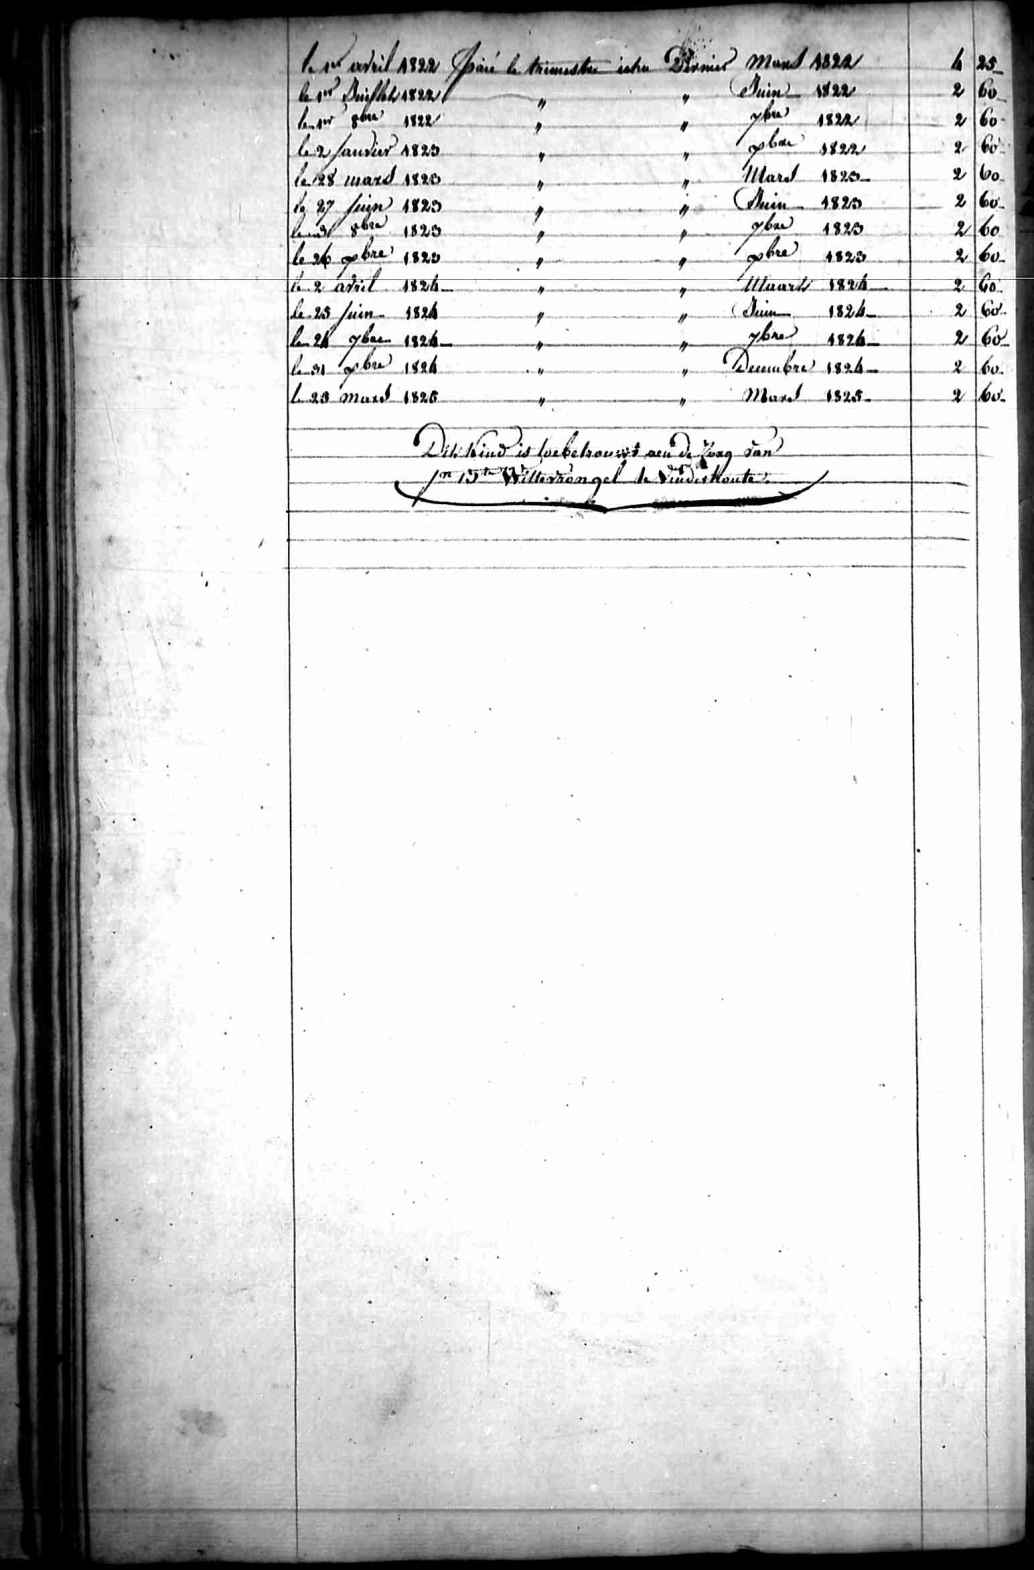 le 1er avril 1822 païé le trimestre échu Dernier Mars 1822 4 25
le 1er Juillet 1822 " " Juin 1822 2 60
le 1er 8bre 1822 " " 7bre 1822 2 60
le 2 janvier 1823 " " xbre 1822 2 60
le 28 mars 1823 " " Mars 1823 2 60
le 27 juin 1823 " " Juin 1823 2 60
le 3 8bre 1823 " " 7bre 1823 2 60
le 26 xbre 1823 " " xbre 1823 2 60
le 2 avril 1824 " " Maart 1824 2 60
le 25 juin 1824 " " Juin 1824 2 60
le 24 7bre 1824 " " 7bre 1824 2 60
le 31 xbre 1824 " " Decembre 1824 2 60
le 23 mars 1825 " " Mars 1825 2 60
Dit Kind is toebetrouwt aen de Zorg van
Jn Bte Wittevrongel te Vinderhoute.